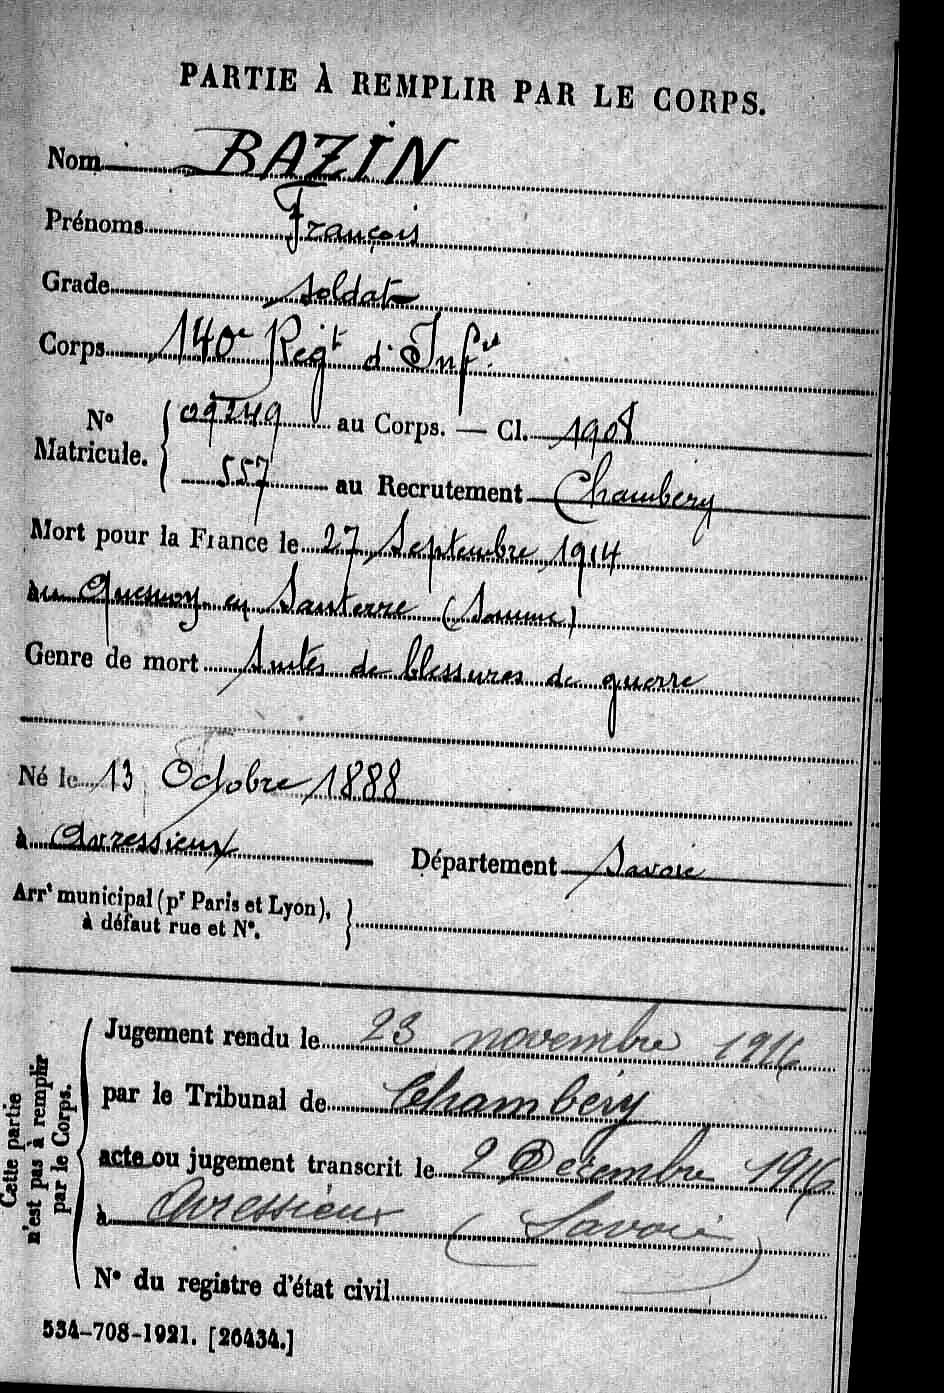 PARTIE À REMPLIR PAR LE CORPS.
Nom BAZIN
Prénoms François
Grade soldat
Corps 140e Régt d'Infie
No Matricule. { 09249 au Corps. — Cl. 1908
557 au Recrutement Chambéry
Mort pour la France le 27 Septembre 1914
au Quesnoy en Santerre (Somme)
Genre de mort Suites de blessures de guerre
Né le 13 Octobre 1888
à Avressieux Département Savoie
Arrt municipal (pr Paris et Lyon), }
à défaut rue et No.
Cette partie
n'est pas à remplir
par le Corps.
Jugement rendu le 23 novembre 1916
par le Tribunal de Chambéry
acte ou jugement transcrit le 2 Décembre 1916
à Avressieux (Savoie)
No du registre d'état civil
534-708-1921. [26434.]